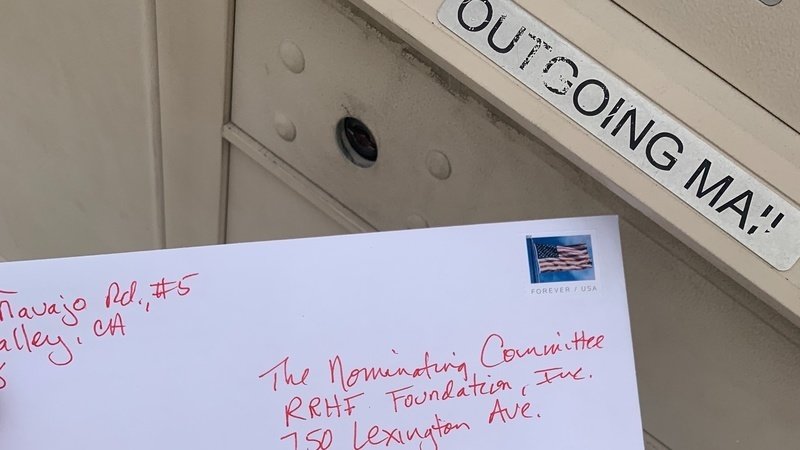 OUTGOING MAIL
FOREVER / USA
Navajo Rd., #5
alley, CA
The Nominating Committee
RRHF Foundation, Inc.
750 Lexington Ave.